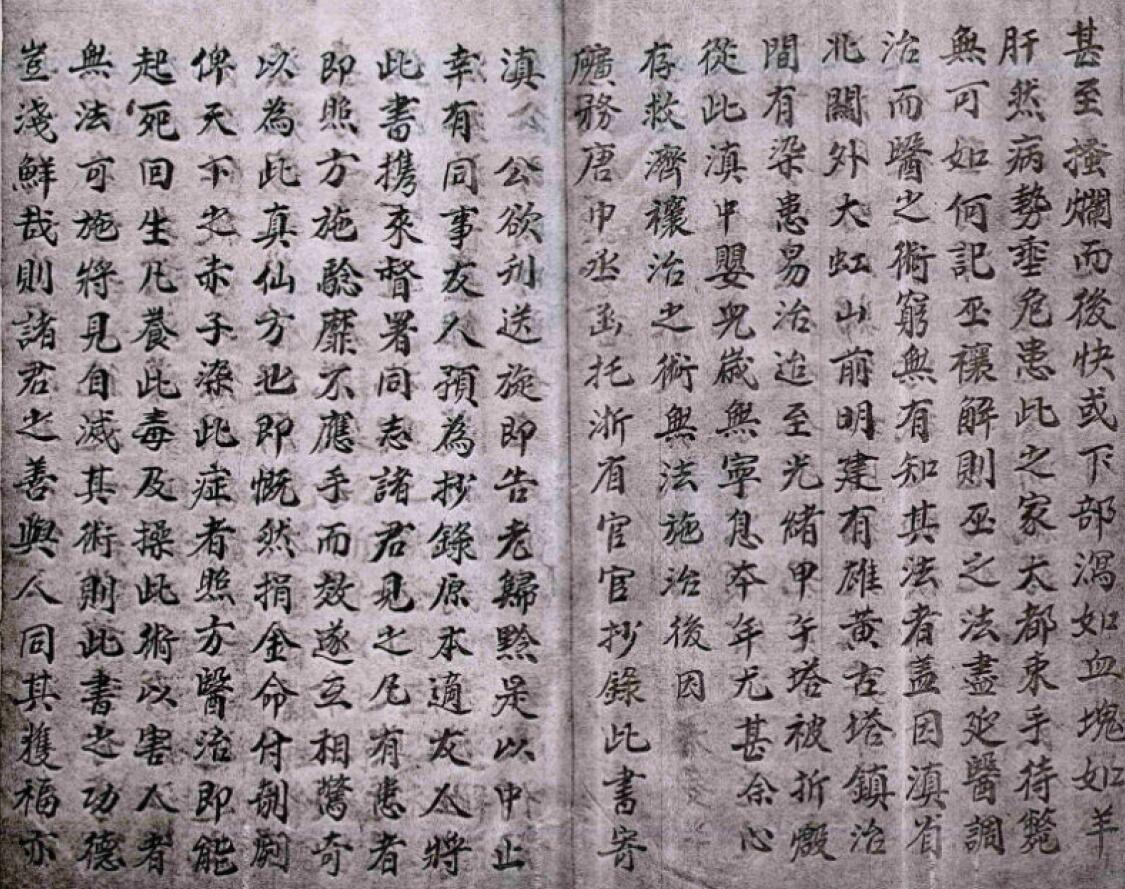 甚至搔爛而後快或下部瀉如血塊如羊
肝然病勢垂危患此之家大都束手待斃
無可如何記巫禳解則巫之法盡延醫調
治而醫之術窮無有知其法者蓋因滇省
北關外大虹山前明建有雄黃古塔鎮治
間有染患易治迨至光緒甲午塔被折毀
從此滇中嬰兒歲無寧息夲年尤甚余心
存救濟禳治之術無法施治後因
礦務唐巾丞函托浙省官官抄錄此書寄
滇 公欲刋送旋即告老歸黔是以中止
幸有同事友人預為抄錄原本適友人將
此書攜來督署同志諸君見之凡有患者
即照方施騐靡不應手而效遂互相驚奇
以為此真仙方也即慨然捐金命付剞劂
俾天下之赤子染此症者照方醫治即能
起死回生凡養此毒及操此術以害人者
無法可施將見自滅其術則此書之功德
豈淺鮮哉則諸君之善與人同其獲福亦